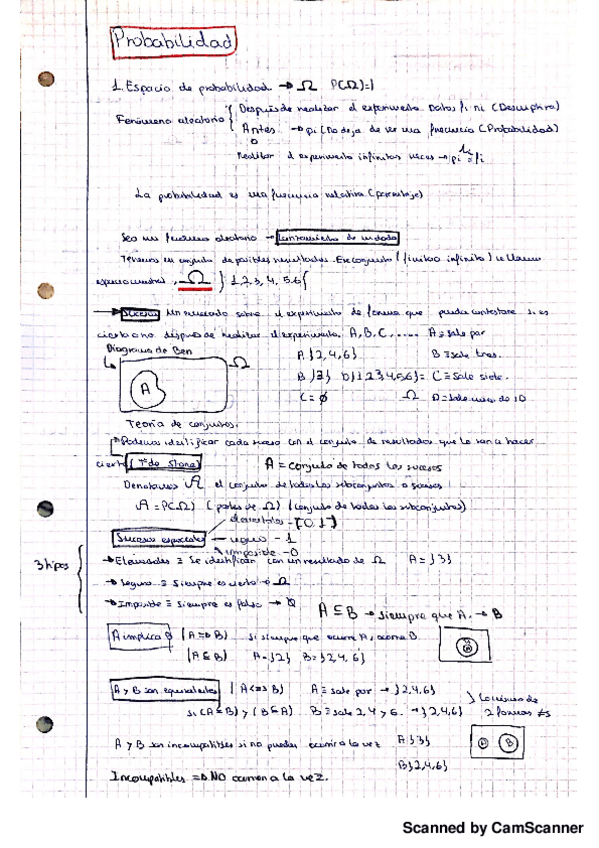 Probabilidad
1. Espacio de probabilidad → Ω P(Ω)=1
Fenómeno aleatorio { Después de realizar el experimento. Datos fi ni (Descriptiva)
Antes → pi (No deja de ser una frecuencia (Probabilidad)
o
Realizar el experimento infinitas veces → pi = fi
La probabilidad es una frecuencia relativa (porcentaje)
Sea un fenómeno aleatorio → Lanzamiento de un dado
Tenemos un conjunto de posibles resultados. Ese conjunto (finito o infinito) se llama
espacio muestral, Ω } 1, 2, 3, 4, 5, 6 {
→ Suceso Un enunciado sobre el experimento de forma que pueda contestarse si es
cierto o no después de realizar el experimento. A, B, C, ..... A ≡ sale par
Diagrama de Ben
A } 2, 4, 6 } B ≡ sale tres.
Ω
B } 3 } D } 1 2 3, 4, 5, 6 } = C ≡ Sale siete.
A
C = ∅ Ω D ≡ Sale menos de 10
Teoría de conjuntos.
Podemos identificar cada suceso con el conjunto de resultados que lo van a hacer
cierto (Tª de Stone) A = conjunto de todos los sucesos
Denotamos A el conjunto de todos los subconjuntos o sucesos
A = P(Ω) (partes de Ω) (conjunto de todos los subconjuntos)
elementales - [0,1]
Sucesos especiales — seguro - 1
imposible - 0
3 tipos
→ Elementales ≡ Se identifican con un resultado de Ω A = } 3 }
→ Seguro ≡ Siempre es cierto → Ω
→ Imposible ≡ Siempre es falso → ∅ A ⊆ B → siempre que A. → B
A implica B (A ⇒ B) si siempre que ocurre A, ocurre B.
(A ⊆ B) A = } 2 } B = } 2, 4, 6 }
A y B son equivalentes (A ⇔ B) A ≡ sale par → } 2, 4, 6 }
Lo mismo de
si (A ⊆ B) y (B ⊆ A) B ≡ sale 2, 4 y 6. → } 2, 4, 6 } 2 formas ≠s
A y B son incompatibles si no pueden ocurrir a la vez A } 3 }
B
B } 2, 4, 6 }
Incompatibles ⇒ NO ocurren a la vez.
Scanned by CamScanner